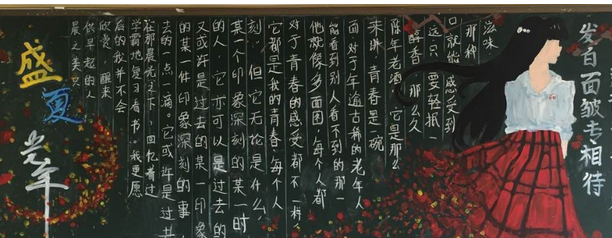 盛夏
光年
晨之美只
供早起的人
欣赏，醒来
后的我并不会
学霸他复习看书。我更愿
在那晨光之下，回忆着过
去的一点一滴。它或许是过去
的某一件印象深刻的事
又或许是过去的某一印象
的人，它亦可以是过去的
某一个印象深刻的某一时
刻，但它无论是什么
它都是我的青春，每个人
对于青春的感受都不一样，
他就像多面图，每个人都
能看到别人看不到的那一
面对于年逾古稀的老年人
来讲青春是一碗
陈年老酒它是那么
醇香那么久
远只要轻抿一
口就能感受到
那种
滋味
面皱专相待